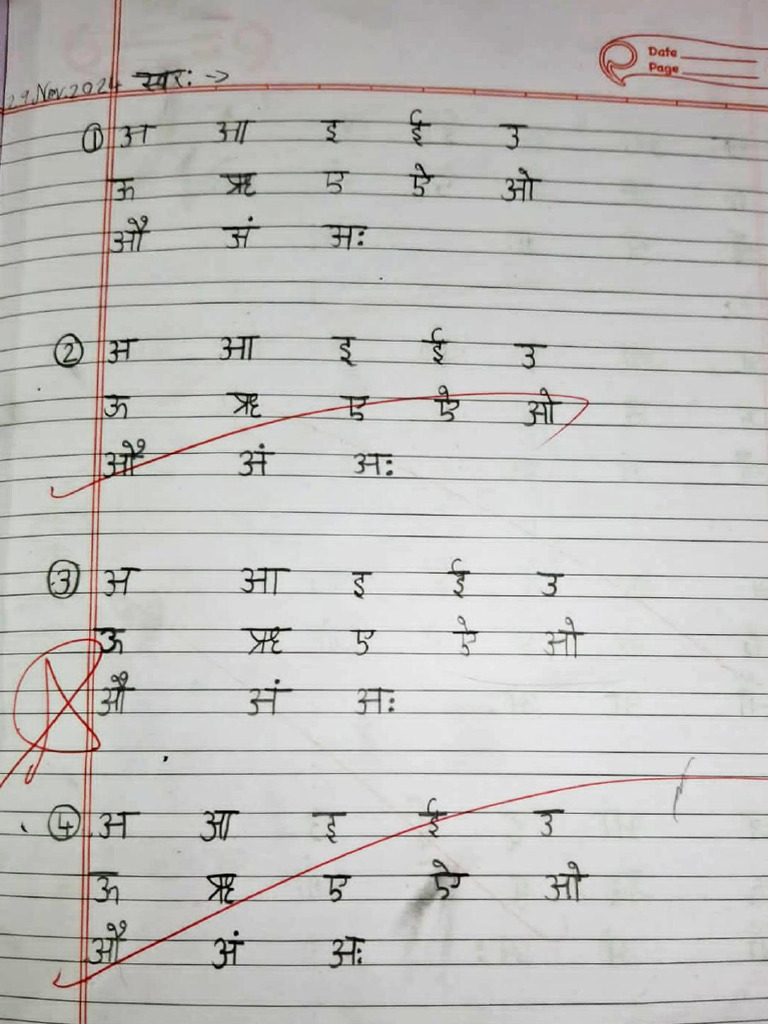 Date
Page
29.Nov.2024 स्वरः →
① अ आ इ ई उ
ऊ ऋ ए ऐ ओ
औ अं अः
② अ आ इ ई उ
ऊ ऋ ए ऐ ओ
औ अं अः
③ अ आ इ ई उ
ऊ ऋ ए ऐ ओ
औ अं अः
④ अ आ इ ई उ
ऊ ऋ ए ऐ ओ
औ अं अः